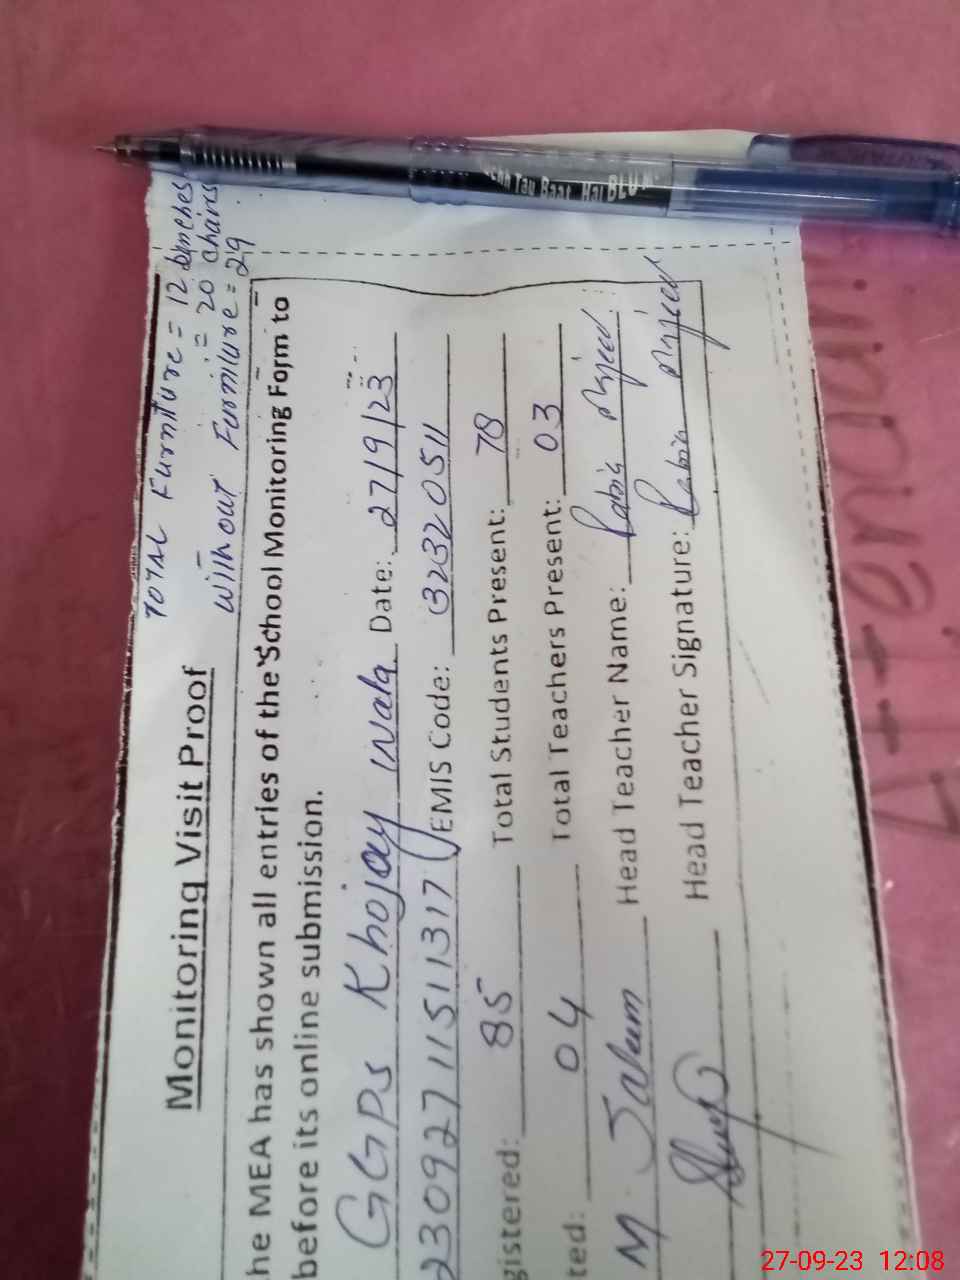 TOTAL Furniture = 12 benches
= 20 chairs
without Furniture = 29
Monitoring Visit Proof
he MEA has shown all entries of the School Monitoring Form to
before its online submission.
GGPS Khojay wala Date: 27/9/23
230927115111317 EMIS Code: 32320511
gistered: 85 Total Students Present: 78
ted: 04 Total Teachers Present: 03
M Head Teacher Name: Rabia Majeed
Head Teacher Signature: Rabia Majeed
Tau Baat Hai
27-09-23 12:08